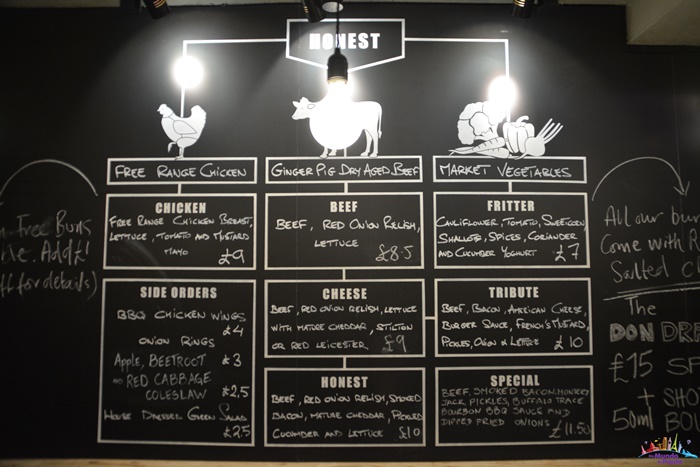 HONEST
FREE RANGE CHICKEN
GINGER PIG DRY AGED BEEF
MARKET VEGETABLES
CHICKEN
FREE RANGE CHICKEN BREAST,
LETTUCE, TOMATO AND MUSTARD
MAYO
£9
BEEF
BEEF, RED ONION RELISH,
LETTUCE
£8.5
FRITTER
CAULIFLOWER, TOMATO, SWEETCORN
SHALLOTS, SPICES, CORIANDER
AND CUCUMBER YOGHURT £7
SIDE ORDERS
BBQ CHICKEN WINGS
£4
ONION RINGS
Apple, BEETROOT £3
RED CABBAGE
COLESLAW £2,5
HOUSE DRESSED GREEN SALAD
£2.5
CHEESE
BEEF, RED ONION RELISH, LETTUCE
WITH MATURE CHEDDAR, STILTON
OR RED LEICESTER £9
TRIBUTE
BEEF, BACON, AMERICAN CHEESE,
BURGER SAUCE, FRENCH'S MUSTARD,
PICKLES, ONION & LETTUCE £10
HONEST
BEEF, RED ONION RELISH, SMOKED
BACON, MATURE CHEDDAR, PICKLED
CUCUMBER AND LETTUCE £10
SPECIAL
BEEF, SMOKED BACON, MONTEREY
JACK, PICKLES, BUFFALO TRACE
BOURBON BBQ SAUCE AND
DIPPED FRIED ONIONS £11.50
Free Buns
Add £1
for details)
All our
Come with
Salted
The
DON
£15
+
50ml